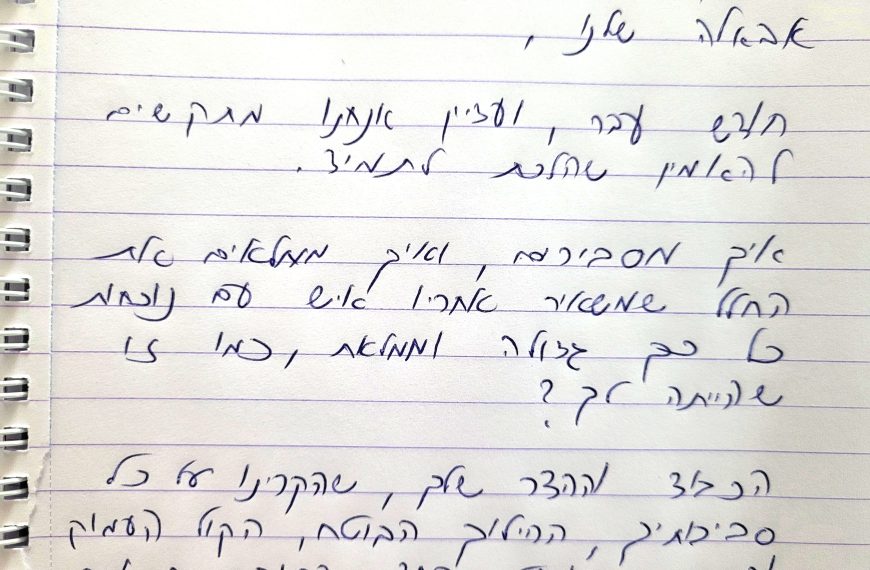 אבאלה שלנו,
חודש עבר, ועדיין אנחנו מתקשים
להאמין שהלכת לתמיד.
איך מסבירים, ואיך ממלאים את
החלל שמשאיר אחריו איש עם נוכחות
כל כך גדולה וממלאת, כמו זו
שהייתה לך?
הכבוד וההדר שלך, שהקרינו על כל
סביבותיך, ההילוך הבוטח, הקול העמוק